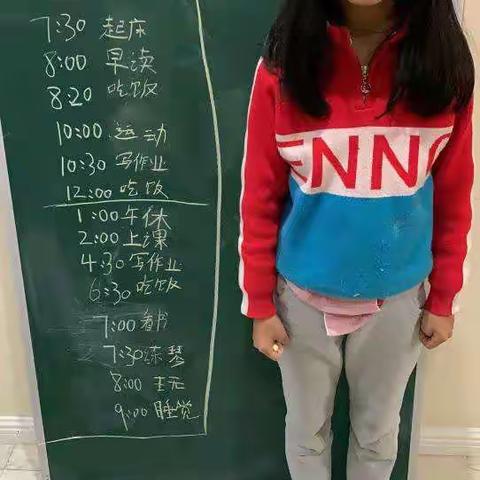 7:30 起床
8:00 早读
8:20 吃饭
10:00 运动
10:30 写作业
12:00 吃饭
1:00 午休
2:00 上课
4:30 写作业
6:30 吃饭
7:00 看书
7:30 练琴
8:00
9:00 睡觉
ENNO